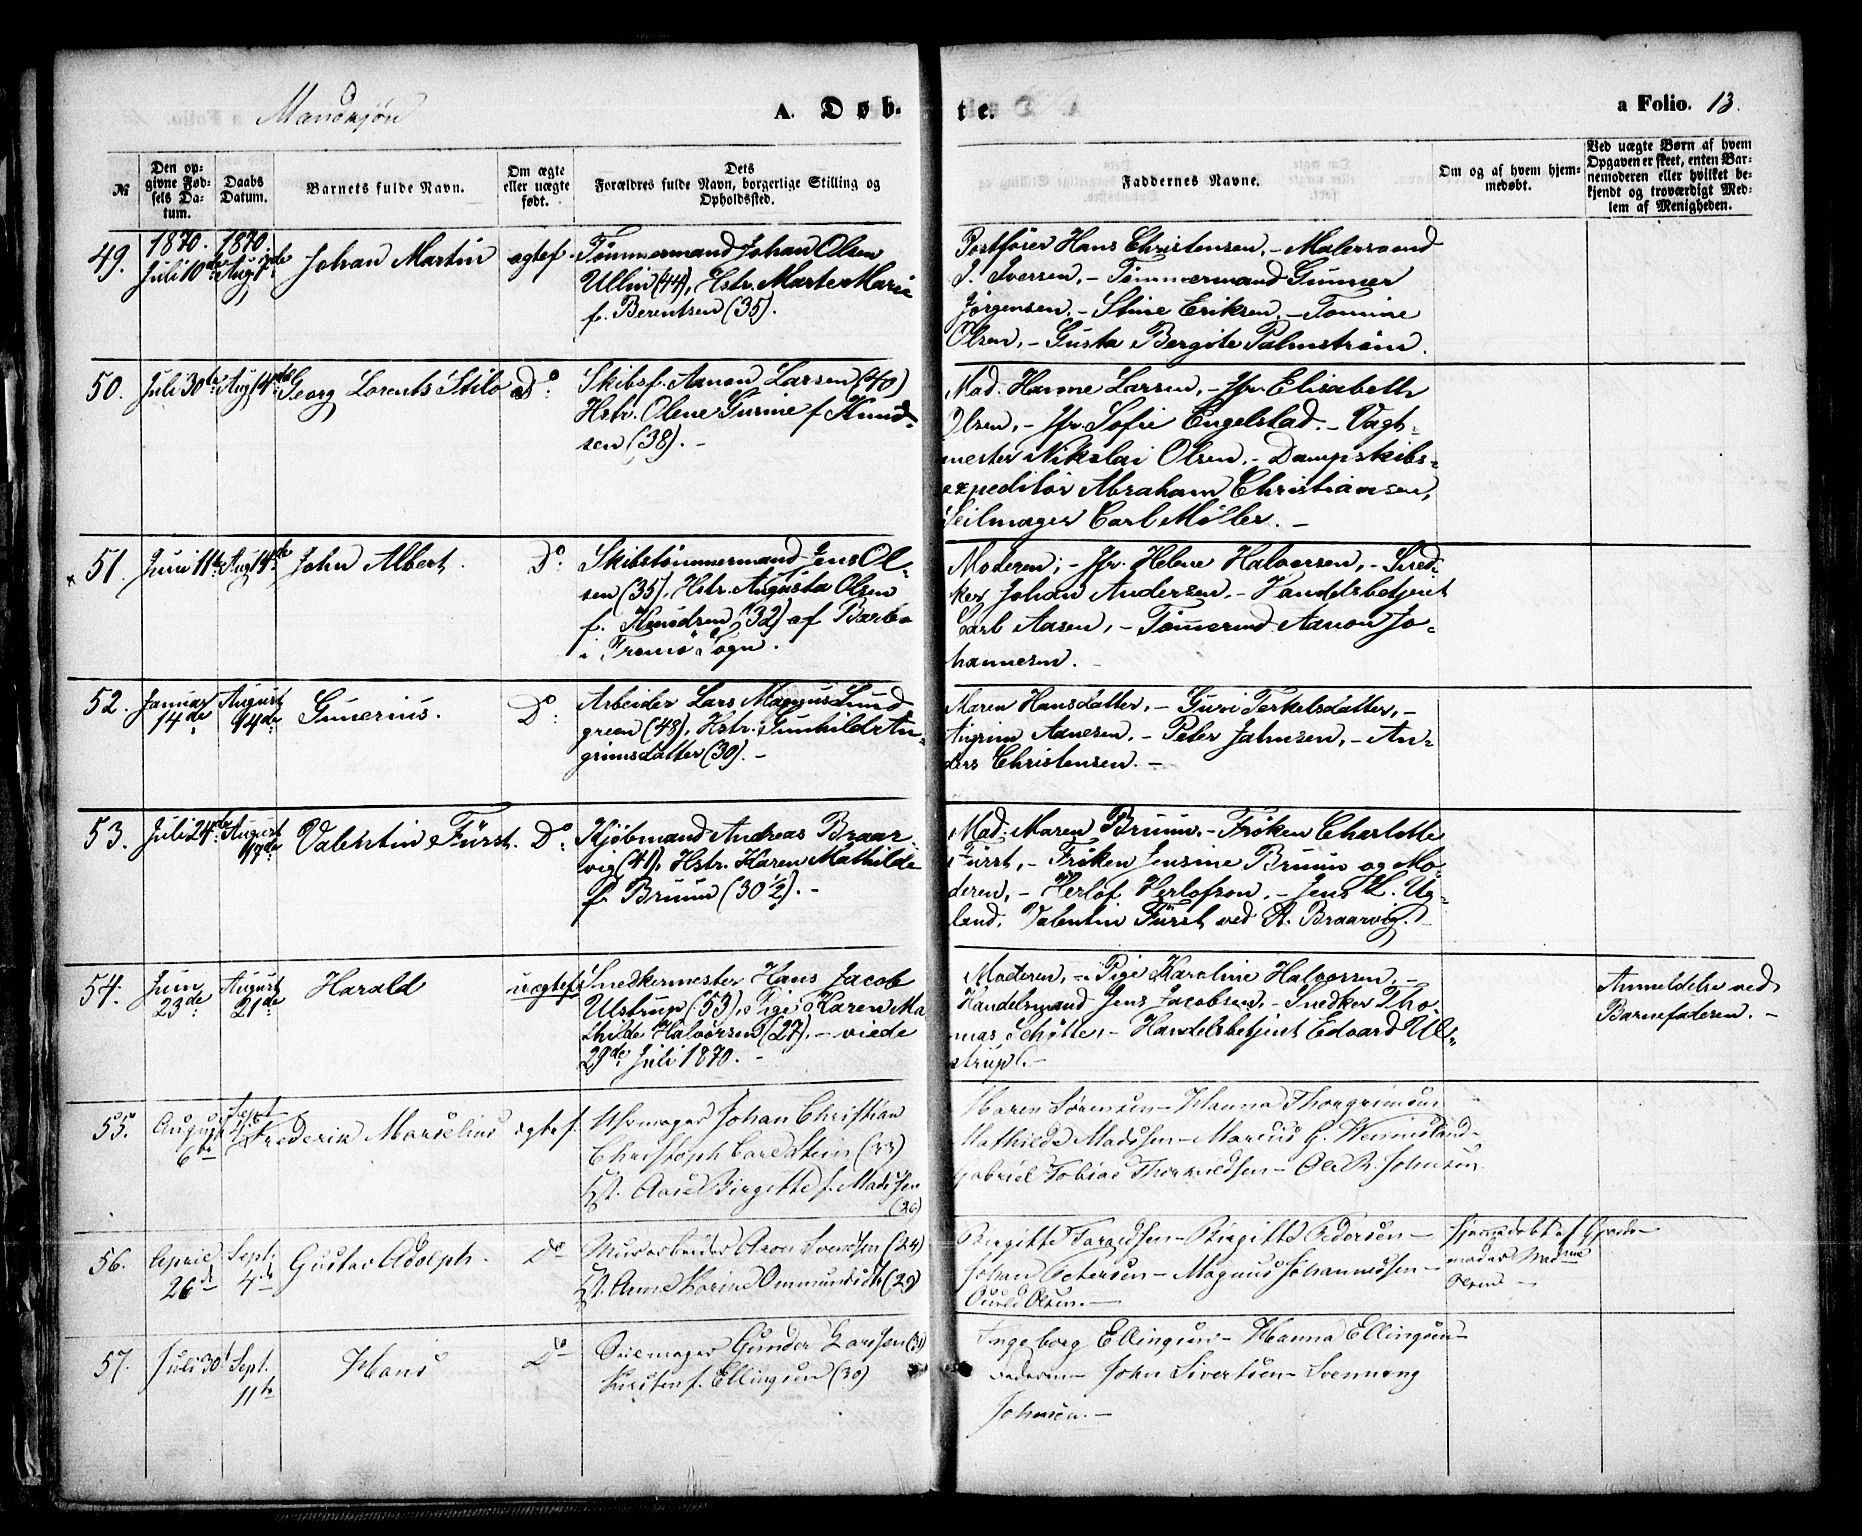 Mandkjøn
A. Døb-
te.
a Folio. 13.
№
Den op-
givne Fød-
sels Da-
tum.
Daabs
Datum.
Barnets fulde Navn.
Om ægte
eller uægte
født.
Dets
Forældres fulde Navn, borgerlige Stilling og
Opholdssted.
Faddernes Navne.
Om og af hvem hjem-
medøbt.
Ved uægte Børn af hvem
Opgaven er skeet, enten Bar-
nemoderen eller hvilket be-
kjendt og troværdigt Med-
lem af Menigheden.
49.
1870.
Juli 10de
1870.
Aug 7de
Johan Martin
ægtef.
Tømmermand Johan Olsen
Ullin (44), Hstr. Marte Marie
f. Berentsen (35).
Hans Christensen, - Malersvend
J. Iversen, - Tømmermand Gunner
Jørgensen, - Stine Eriksen, - Tomine
Olsen, - Gusta Bergite Palmstrøm.
50.
Juli 30te
Aug 14de
Georg Lorents Stilo
Do:
Skibsf. Aanon Larsen (40)
Hstr. Olene Gurine f. Knud-
sen (38). -
Mad. Hanne Larsen, - Jfr. Elisabeth
Olsen, - Jfr. Sofie Engelstad. - Vagt-
mester Nikolai Olsen, - Dampskibs-
expeditør Abraham Christiansen,
Seilmager Carl Møller. -
51.
Juni 11te
Aug 14de
John Albert.
Do:
Skibstømmermand Jens Ol-
sen (35), Hstr. Augusta Olsen
f. Knudsen (32) af Barbo
i Tromø Sogn.
Moderen; - Jfr. Helene Halvorsen, - Sned-
ker Johan Andersen, - Handelsbetjent
Carl Aasen, - Tømermd. Aanon Jo-
hannesen. -
52.
Januar
14de
August
14de
Gunerius.
Do:
Arbeider Lars Magnus Lund
green (48), Hstr. Gunhild An-
grimsdatter (30). -
Maren Hansdatter, - Guri Terkelsdatter, -
Angrim Aanesen, - Peter Jahnsen, - An-
ders Christensen. -
53.
Juli 24de
August
17de
Valentin Fürst.
Do:
Kjøbmand Andreas Braar-
vig (41), Hstr. Karen Mathilde
f. Bruun (30 1/2). -
Mad. Maren Bruun, - Frøken Charlotte
Fürst, - Frøken Jensine Bruun og Mo-
deren, - Herlof Herlofson, - Jens L. Ug-
land, Valentin Fürst ved A. Braarvig. -
54.
Juni
23de
August
21de
Harald
uægtef.
Snedkermester Hans Jacob
Ulstrup (53), Pige Karen Ma
thilde Halvorsen (27), - viede
29de Juli 1870. -
Moderen, - Pige Karoline Halvorsen, -
Handelsmand Jens Jacobsen, - Snedker Tho-
mas Schøtte, - Handelsbetjent Edvard Ul-
strup. -
Anmeldelse ved
Barnefaderen. -
55.
August
6te
Sept
Frederik Marselius
ægtef.
Johan Christian
Christoph Carl Stein (33)
Hst. Aase Birgitte f. Madsen
(26)
Maren Sørensen - Hanna Thorgrimsen
Mathilde Madssen - Marcus G. Wennesland -
Gabriel Tobias Thorkildsen - Ole R. Johnsen.
56.
April
26de
Sept.
4de
Gustav Adolph.
Do
Murarbeider Aron Svendsen (24)
Hst. Anne Karine Ommundsdtr (29)
Birgitte Pedersen -
Johan Petersen - Magnus Johannessen -
Olsen. -
Hjemmedøbt af Gjorde-
moder Madme
Olsen -
57.
Juli 30te
Sept.
11te
Hans
Do
Seilmager Gunder Larssen (31)
Kirsten f. Ellingsen (30)
Ingeborg Ellingsen - Hanna Ellingsen -
Faderen - John Sivertsen - Svennung
Johnsen. -